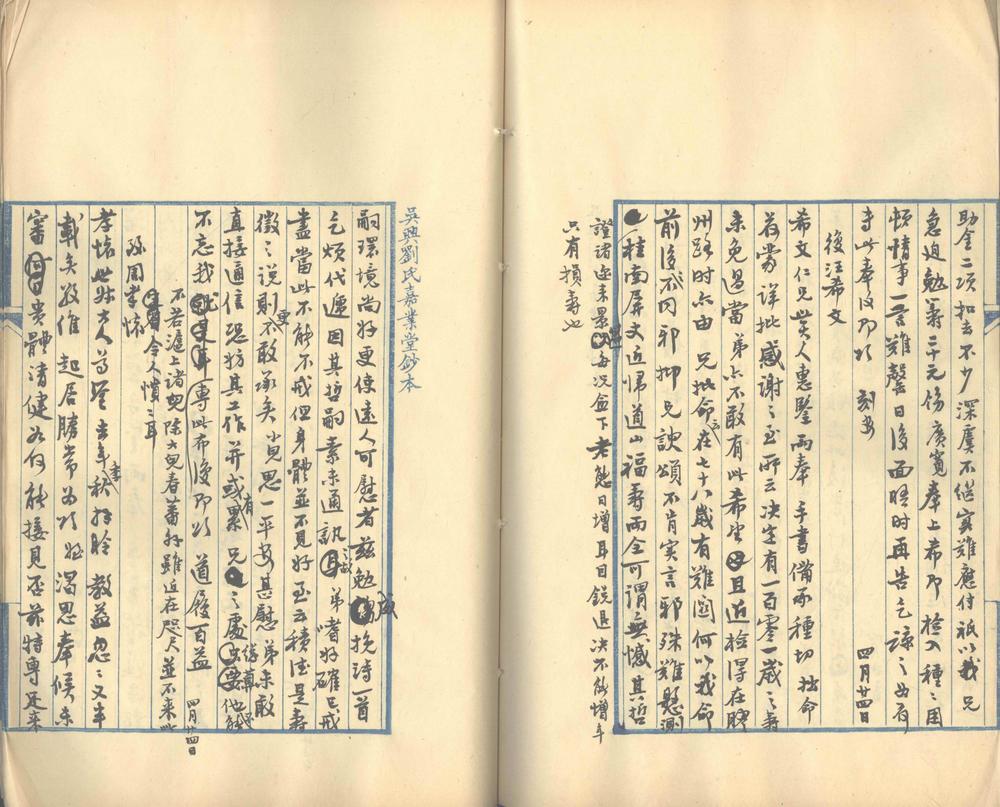 助金二項扣去不少深虞不繼實難應付祇以我兄
急迫勉籌二十元仿廣賓奉上希即檢入種種困
頓情事一言難罄日後面晤時再告乞諒之如有
專此奉復即頌 刻安 四月廿四日
復汪希文
希文仁兄世大人惠鑒兩奉手書備承種切拙命
荷蒙詳批感謝之至所云決定有一百零一歲之壽
未免過當弟亦不敢有此希望且近檢得在膠
州路時亦由兄批命云在七十八歲有難關何以我命
前後不同邪抑兄諛頌不肯實言邪殊難懸測
桂南屏丈近歸道山福壽兩全可謂無憾其哲
證諸近來景況每況愈下老態日增耳目銳退決不能增年
只有損壽也
吳興劉氏嘉業堂鈔本
嗣環境尚好更使遠人可慰者茲勉成挽詩一首
乞煩代遞因其哲嗣素未通訊故弟嗜好確已戒
盡當此不能不戒但身體並不見好至云積德是壽
徵之說則更不敢承矣兒思一平安甚慰弟未敢
直接通信恐妨其工作并或有累兄之處他能
不忘我專此布復即頌 道履百益 四月廿四日
不若滬上諸兒除大兒春蕃外雖近在咫尺並不來此
令人憤憤耳
孫周孝懷
孝懷世叔大人尊鑒去年秋季拜聆教益忽忽又半
載矣敬維起居勝常為頌姪渴思奉候未
審貴體清健如何能接見否茲特專足來